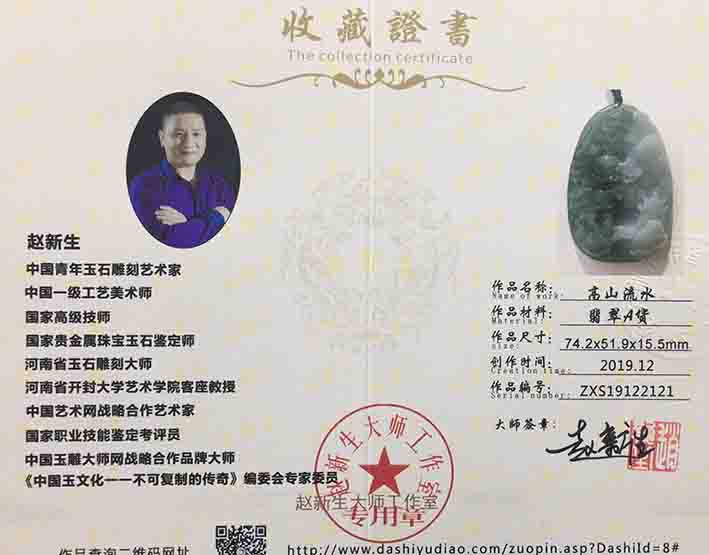 收藏證書
The collection certificate
赵新生
中国青年玉石雕刻艺术家
中国一级工艺美术师
国家高级技师
国家贵金属珠宝玉石鉴定师
河南省玉石雕刻大师
河南省开封大学艺术学院客座教授
中国艺术网战略合作艺术家
国家职业技能鉴定考评员
中国玉雕大师网战略合作品牌大师
《中国玉文化一一不可复制的传奇》编委会专家委员
作品名称： 高山流水
Name of work:
作品材料： 翡翠A货
Material:
作品尺寸： 74.2x51.9x15.5mm
size:
创作时间： 2019.12
Creation time:
作品编号： ZXS19122121
Serial number:
大师签章： 赵新生
赵新生大师工作室
专用章
赵新生大师工作室
作品查询二维码网址
http://www.dashiyudiao.com/zuopin.asp?DashiId=8#